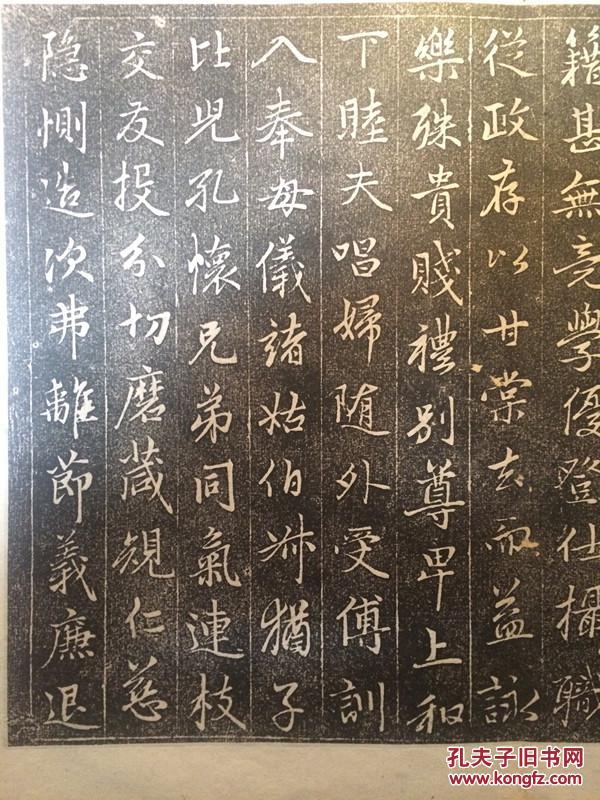 籍甚無竟學優登仕攝職
從政存以甘棠去而益詠
樂殊貴賤禮別尊卑上和
下睦夫唱婦随外受傅訓
入奉母儀諸姑伯叔猶子
比兒孔懷兄弟同氣連枝
交友投分切磨葴規仁慈
隐惻造次弗離節義廉退
孔夫子旧书网
www.kongfz.com